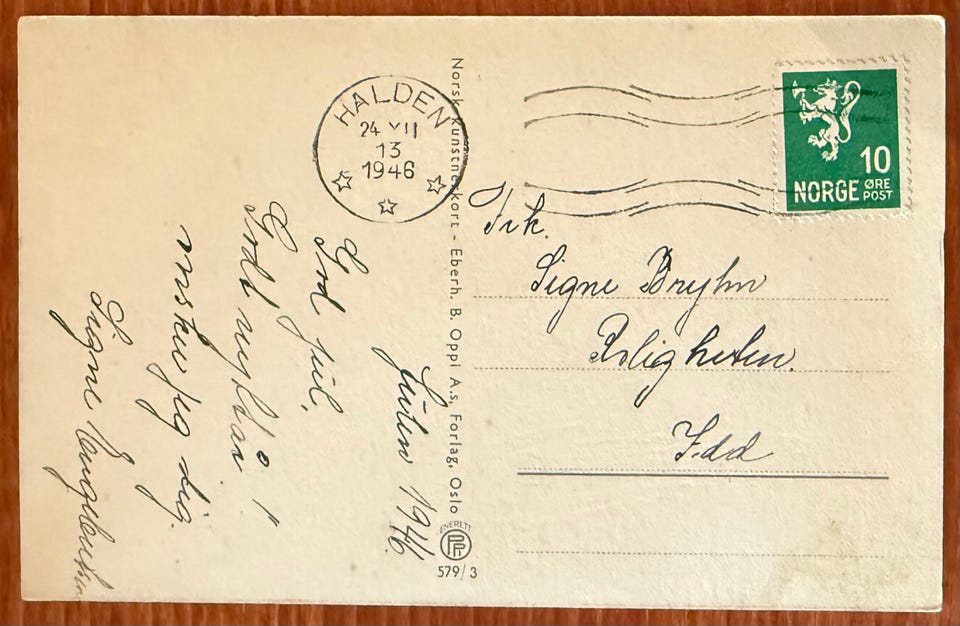 Julen 1946.
God jul,
Godt nyttår!
ønsker jeg dig.
Signe
HALDEN
24 XII
13
1946
Norsk kunstnerkort - Eberh. B. Oppi A.s, Forlag, Oslo
ENERETT
579/3
10
NORGE ØRE
POST
Frk.
Signe Bryhn
Roligheten.
Idd